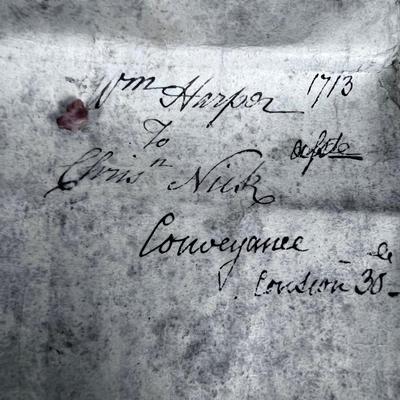 Wm Harper 1713
To
Chrisn Nick
Conveyance
London 30